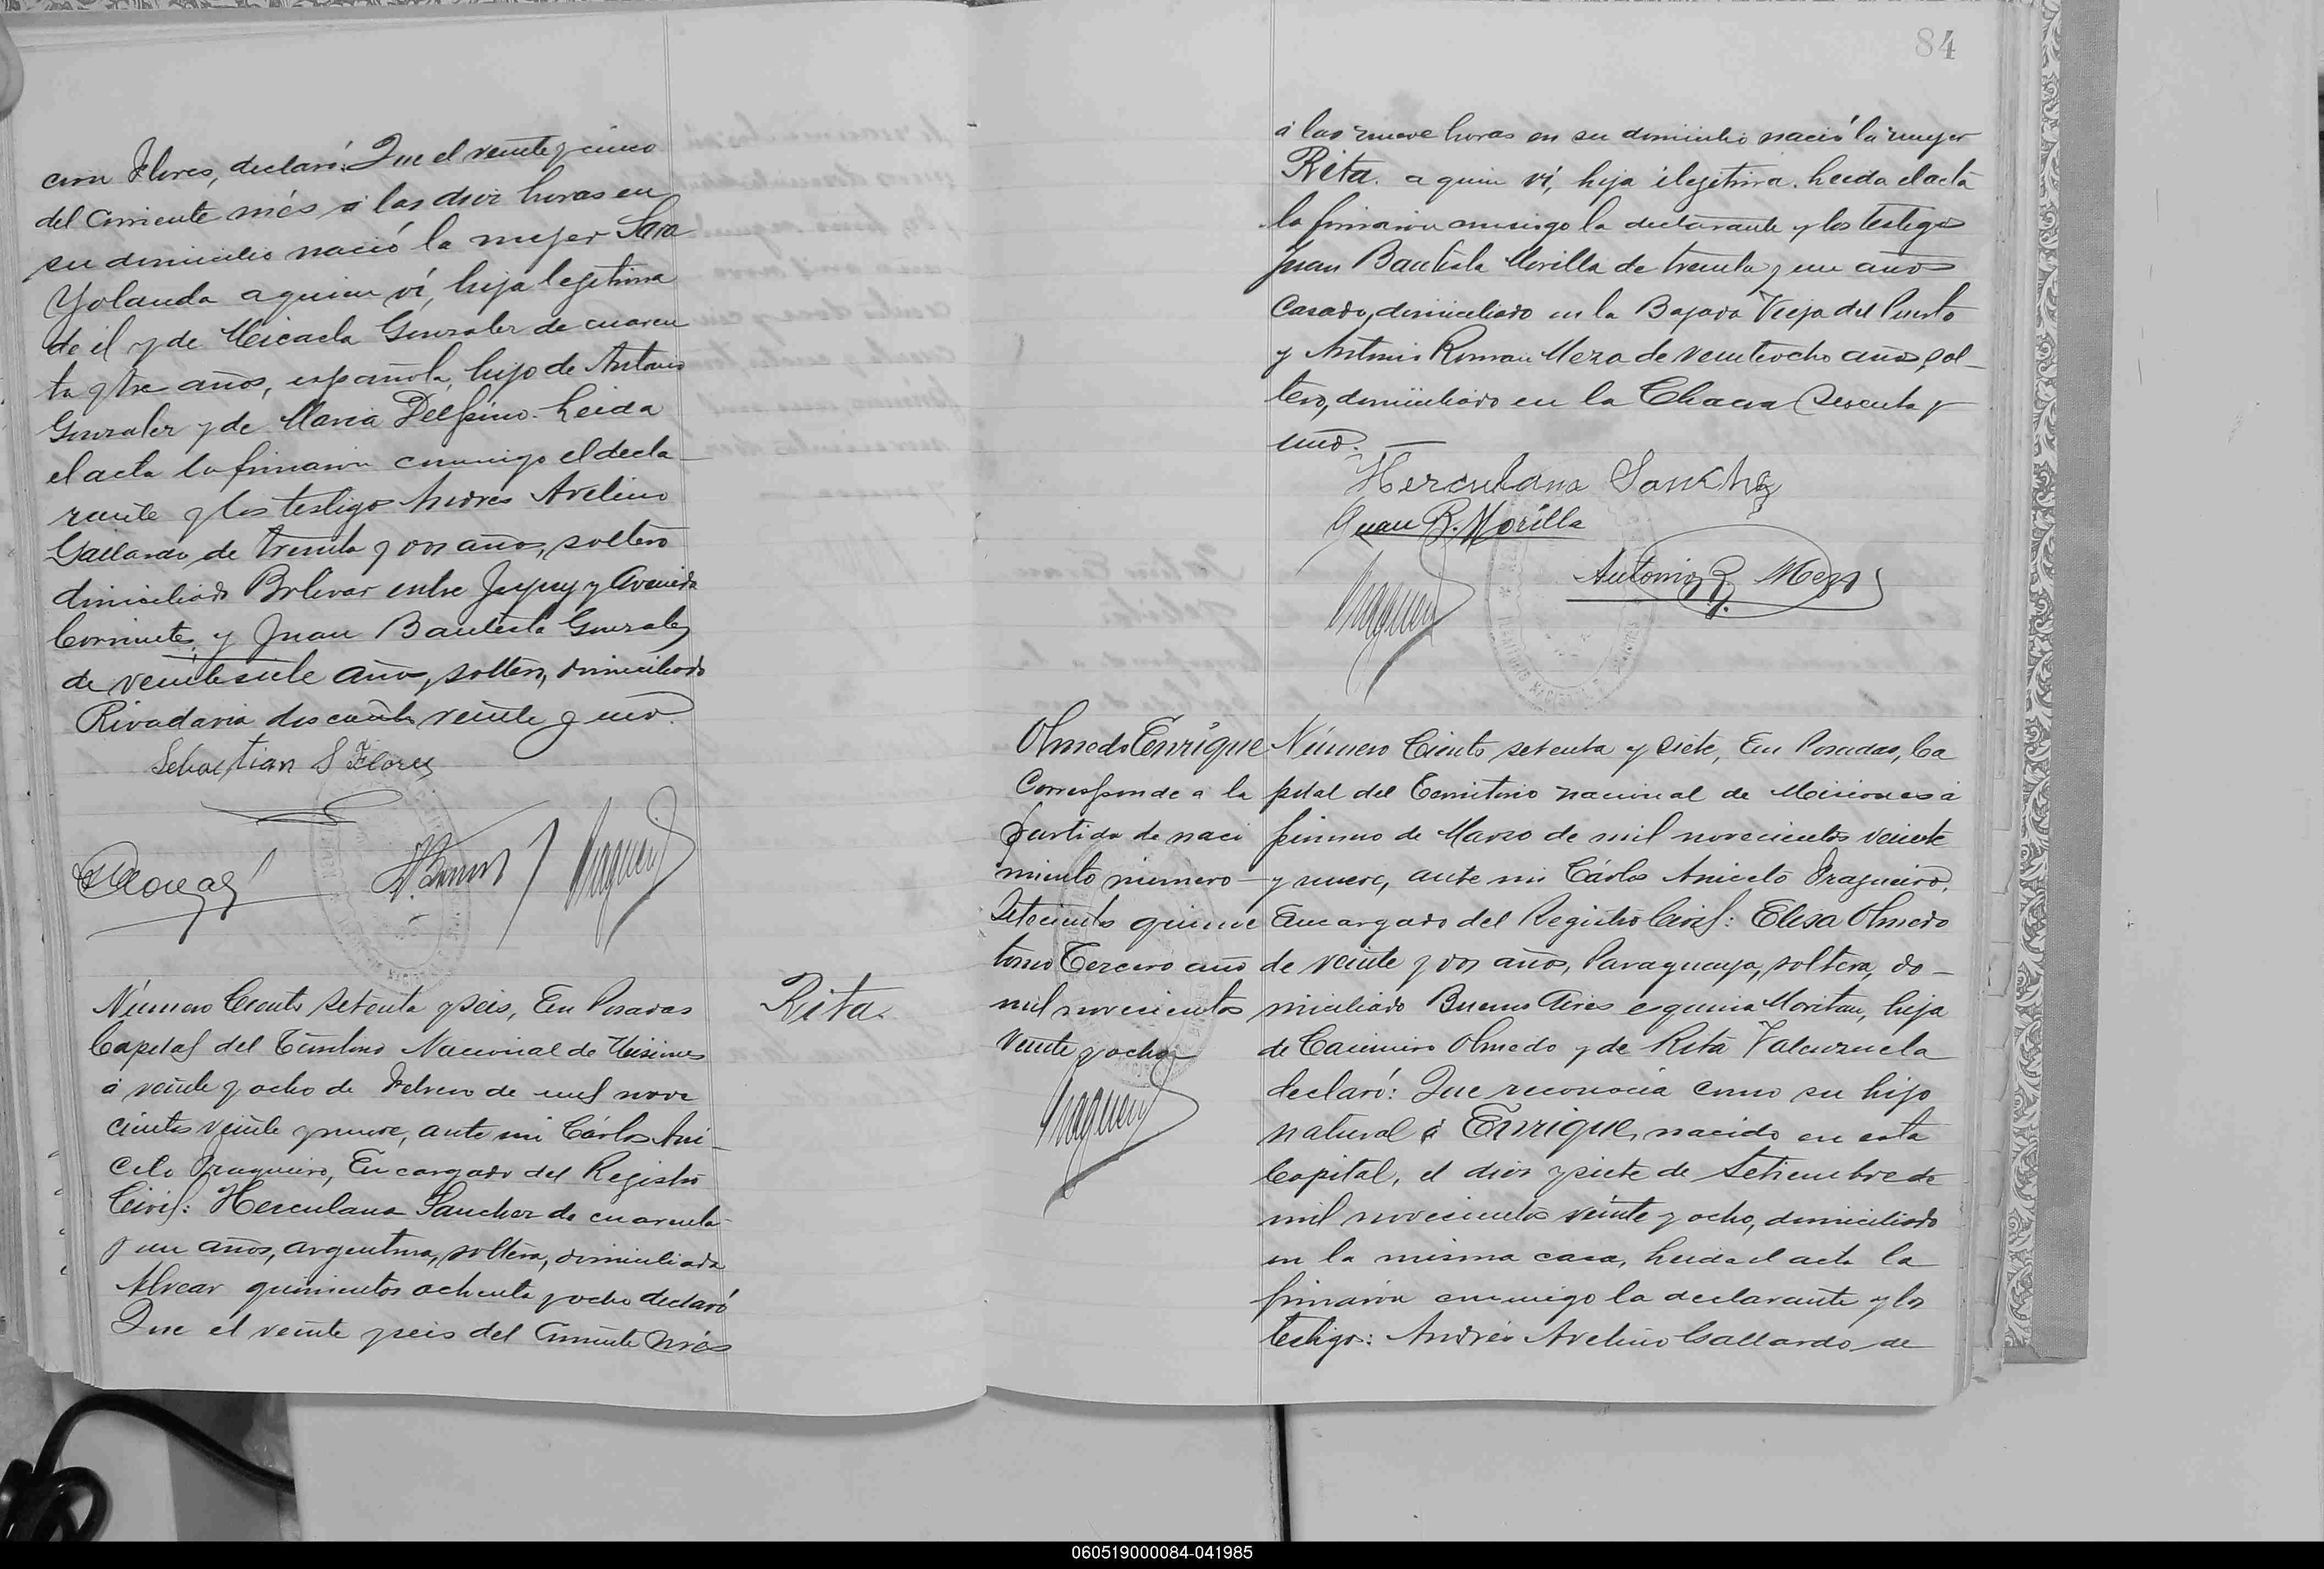 cion Flores, declaró: Que el veinte y cinco
del corriente més á las diez horas en
su domicilio nació la mujer Sara
Yolanda a quien ví, hija legítima
de él y de Micaela Gonzalez de cuaren
ta y tres años, española, hijo de Antonio
Gonzalez y de Maria Delfino. Leida
el acta la firmaron conmigo el decla-
rante y los testigo Andres Avelino
Gallardo de treinta y dos años, soltero
domiciliado Bolivar entre Jujuy y Avenida
Corrientes, y Juan Bautista Gonzalez
de veintesiete años, soltero, domiciliado
Rivadavia doscientos veinte y uno.
Sebastian S Flores
Número Ciento setenta y seis, En Posadas
Capital del Territorio Nacional de Misiones
á veinte y ocho de Febrero de mil nove
cientos veinte y nueve, ante mi Cárlos Ani-
ceto Fragueiro, Encargado del Registro
Civil: Herculana Sanchez de cuarenta
y un años, argentina, soltera, domiciliada
Alvear quinientos ochenta y ocho declaró
Que el veinte y seis del corriente més
Rita.
84
á las nueve horas en su domicilio nació la mujer
Rita. a quien ví, hija ilegítima. Leida el acta
la firmaron conmigo la declarante y los testigos
Juan Bautista Morilla de treinta y un años
casado, domiciliado en la Bajada Vieja del Puerto
y Antonio Roman Meza de veinteocho años, sol-
tero, domiciliado en la Chacra Sesenta y
uno.
Herculana Sanchez
Juan B. Morilla
Antonio R. Meza
Olmedo Enrique
Corresponde a la
partida de naci
miento número
Setecientos quince
tomo Tercero año
mil novecientos
veinte y ocho
Número Ciento setenta y siete, En Posadas, Ca
pital del Territorio nacional de Misiones á
primero de Marzo de mil novecientos veinte
y nueve, ante mi Cárlos Aniceto Fragueiro,
Encargado del Registro Civil: Elisa Olmedo
de veinte y dos años, Paraguaya, soltera, do-
miciliado Buenos Aires esquina Moritan, hija
de Casimiro Olmedo y de Rita Valenzuela
declaró: Que reconocia como su hijo
natural á Enrique, nacido en esta
Capital, el diez y siete de Setiembre de
mil novecientos veinte y ocho, domiciliado
en la misma casa, Leida el acta la
firmaron conmigo la declarante y los
testigos: Andrés Avelino Gallardo de
060519000084-041985